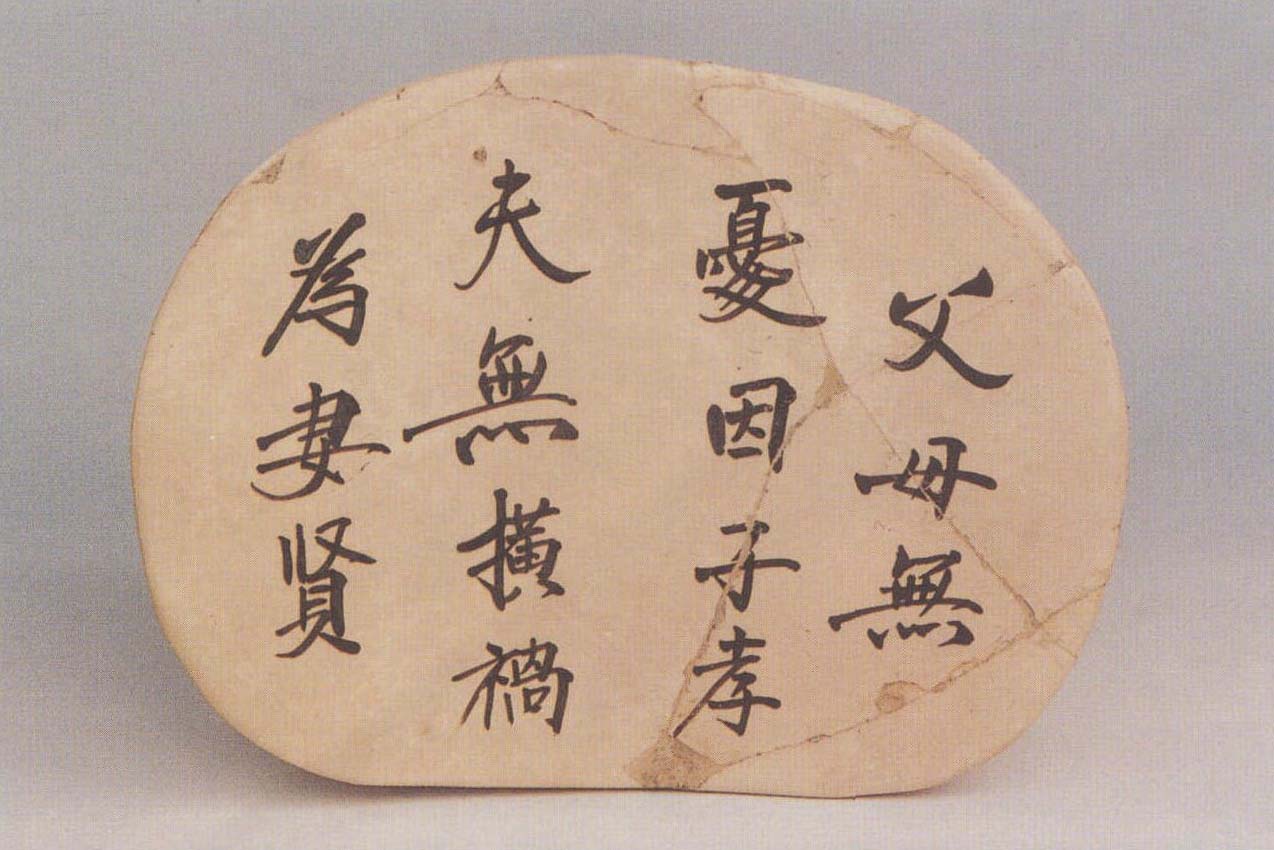 父母無
憂因子孝
夫無擴禍
為妻贤